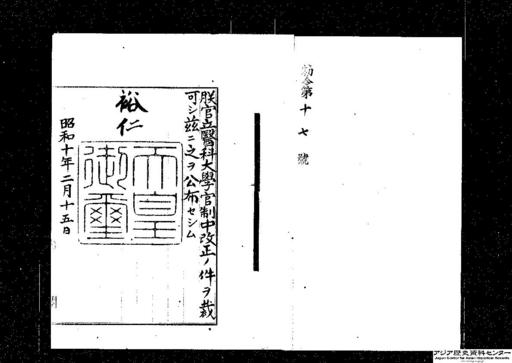 勅令第十七號
朕官立醫科大學官制中改正ノ件ヲ裁
可シ茲ニ之ヲ公布セシム
裕仁
天皇
御璽
昭和十年二月十五日
アジア歴史資料センター
Japan Center for Asian Historical Records